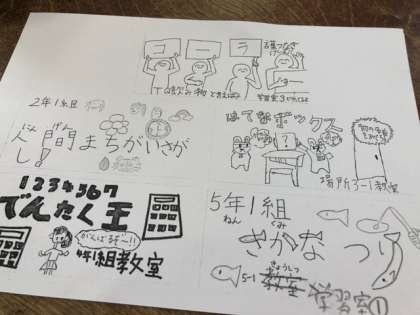 コーラ
言葉つなぎ
ゲーム
飲み物と言えば?
学習室3
2年1組
人間まちがいさが
にん げん
し!
はてなボックス
?
場所3-1教室
1234567
でんたく王
がんばるぞ~!!
4年1組教室
5年1組
ねん くみ
さかなつり
きょうしつ
5-1 教室 学習室①